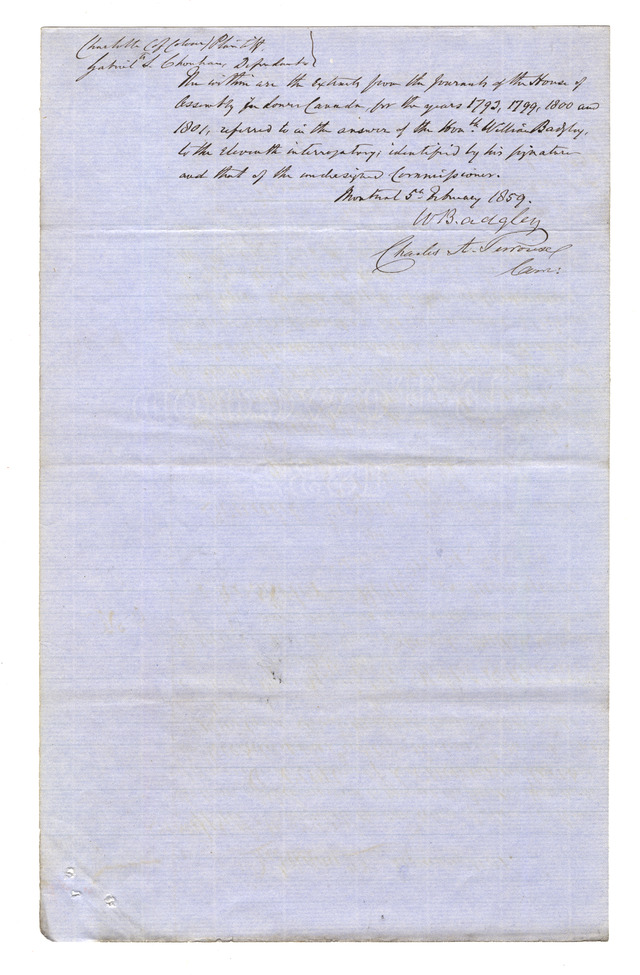 Charlotte (of Color) Plaintiff.
Gabriel S. Chouteau, Defendant
The within are the extracts from the Journals of the House of
Assembly in Lower Cannada, for the years 1793, 1799, 1800 and
1801, referred to in the answer of the Honble William Badgley,
to the eleventh interrogatory; identified by his signature
and that of the undersigned Commissioner.
Montreal 5th February 1859.
W Badgley
Charles A. Terroux
Com: